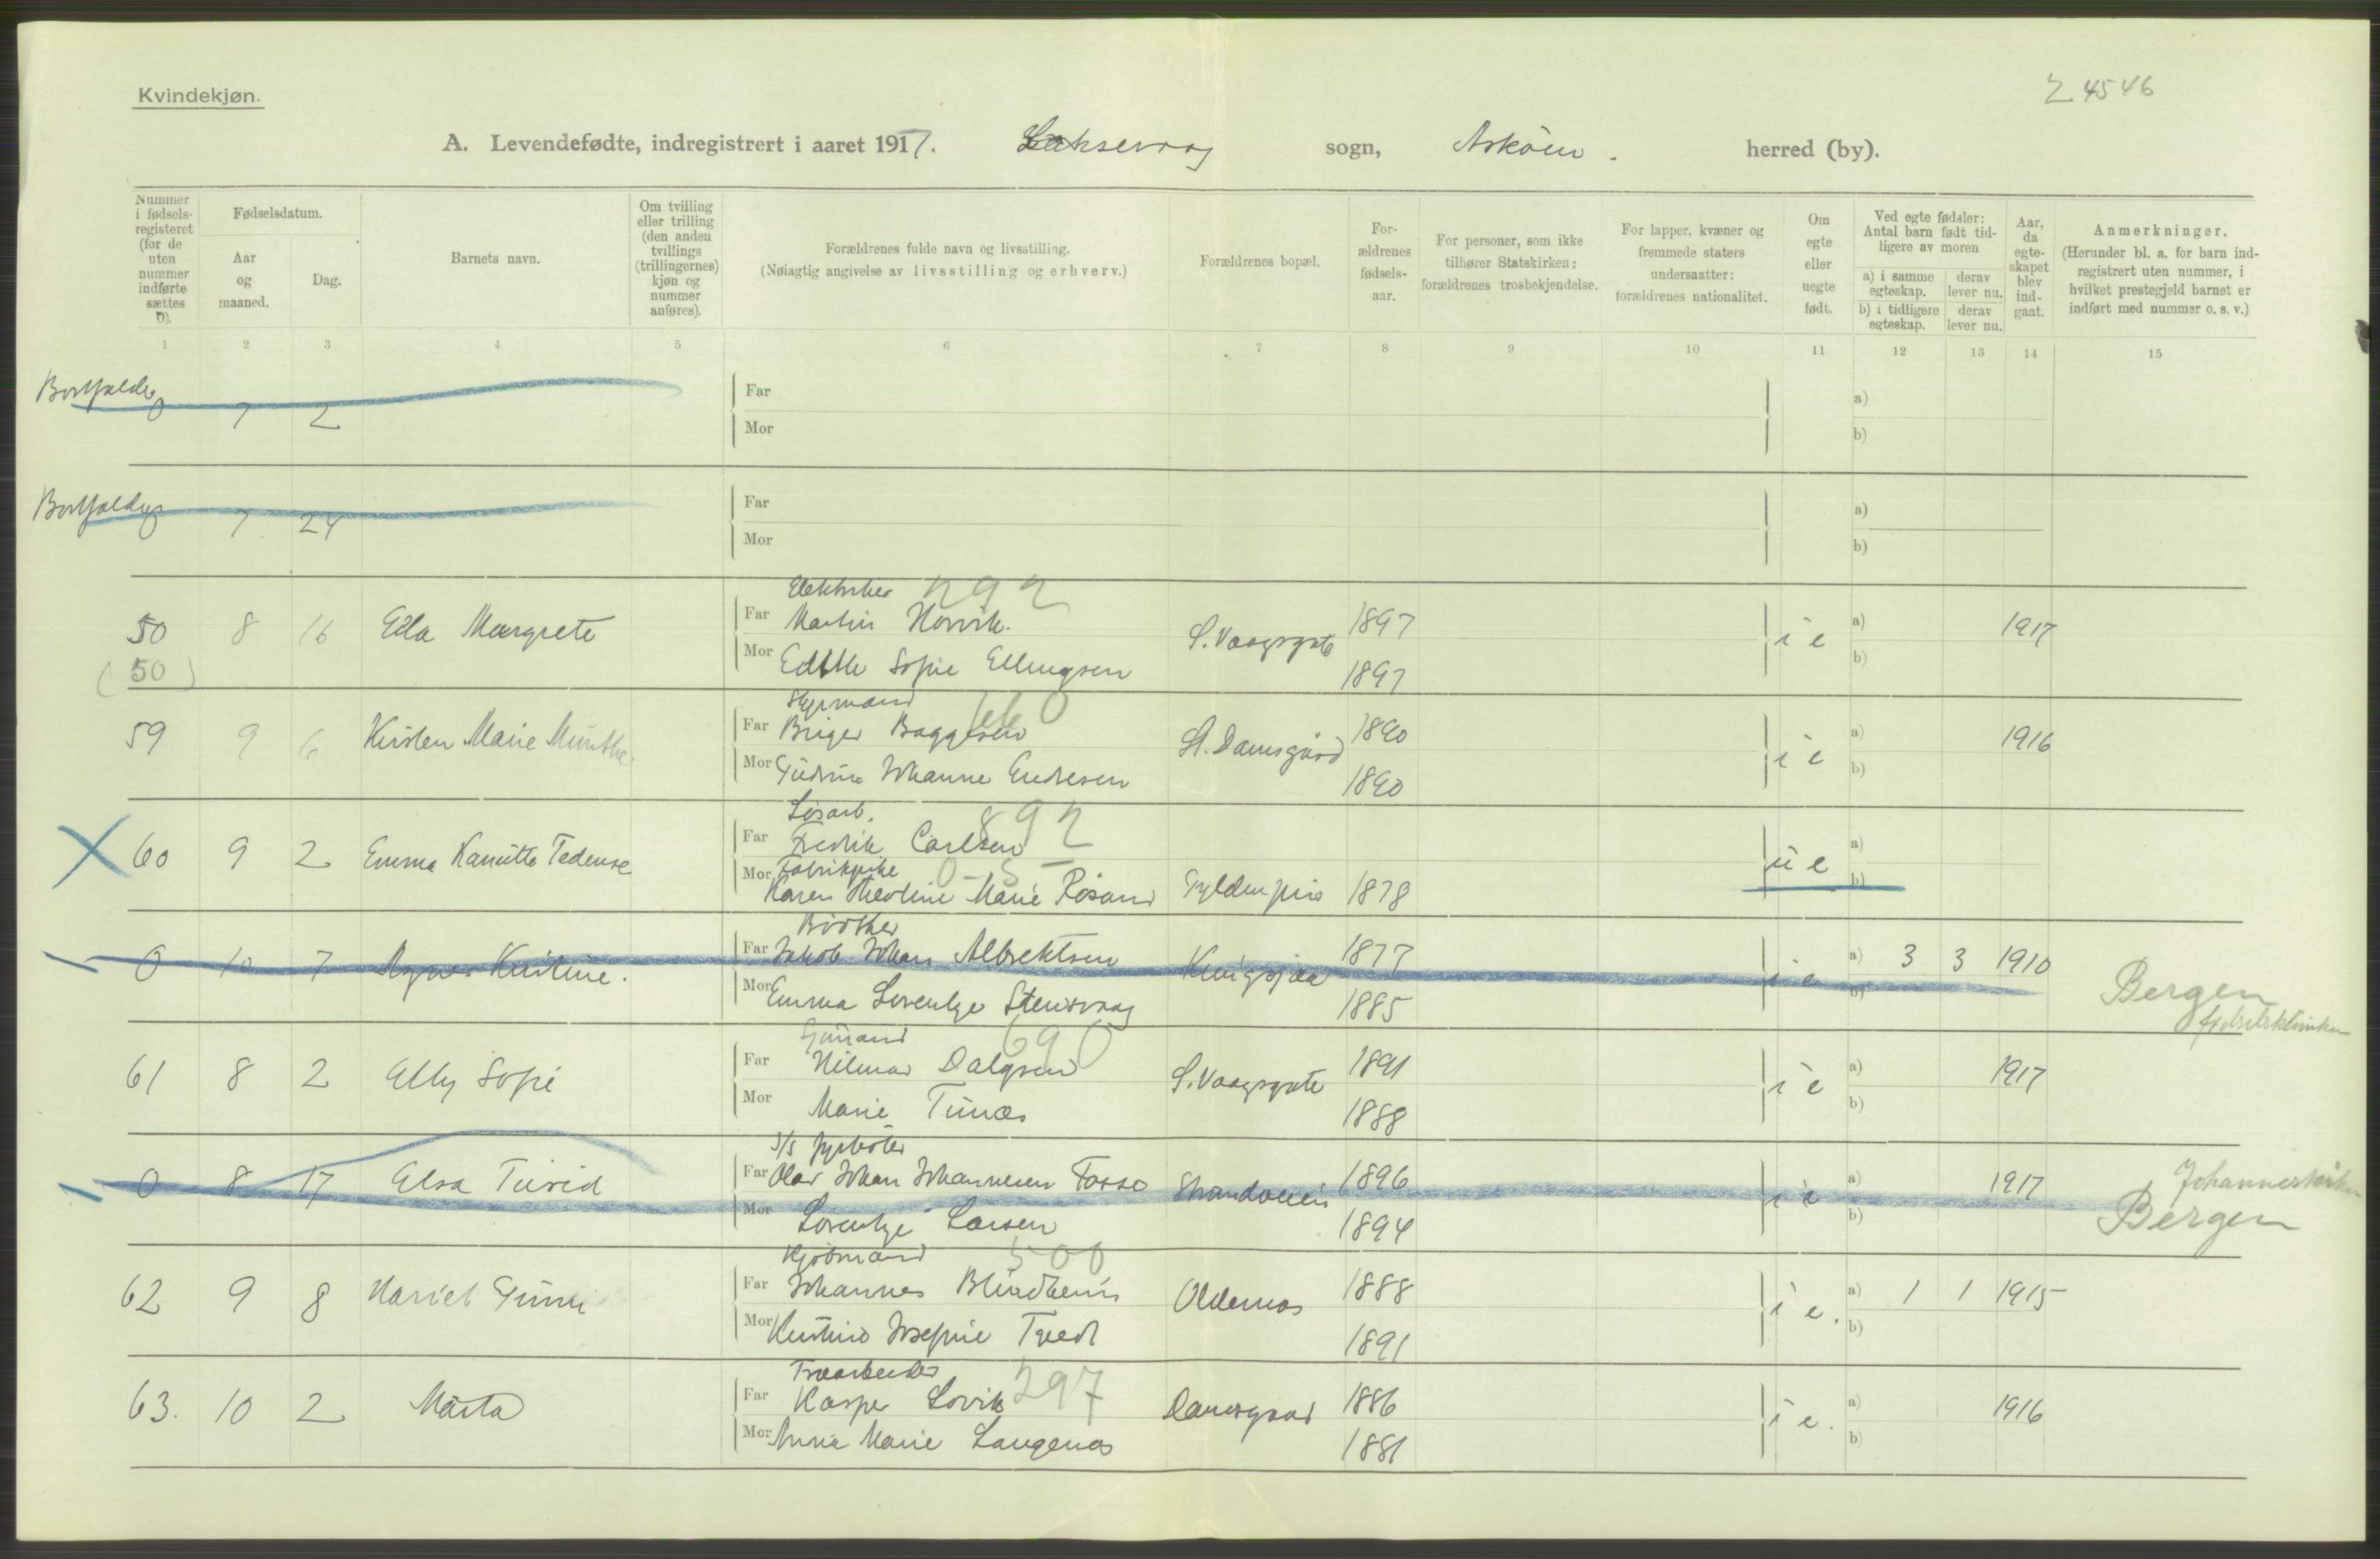 Kvindekjøn.
24546
A. Levendefødte, indregistrert i aaret 1917. Laksevaag sogn, Askøen. herred (by).
Nummer i fødsels-registeret (for de uten nummer indførte sættes 0).
Fødselsdatum.
Aar og maaned.
Dag.
Barnets navn.
Om tvilling eller trilling (den anden tvillings (trillingernes) kjøn og nummer anføres).
Forældrenes fulde navn og livsstilling.
(Nøiagtig angivelse av livsstilling og erhverv.)
Forældrenes bopæl.
For-ældrenes fødsels-aar.
For personer, som ikke tilhører Statskirken: forældrenes trosbekjendelse.
For lapper, kvæner og fremmede staters undersaatter: forældrenes nationalitet.
Om egte eller uegte født.
Ved egte fødsler: Antal barn født tid-ligere av moren
a) i samme egteskap.
derav lever nu.
b) i tidligere egteskap.
derav lever nu.
Aar, da egte-skapet blev ind-gaat.
Anmerkninger.
(Herunder bl. a. for barn ind-registrert uten nummer, i hvilket prestegjeld barnet er indført med nummer o. s. v.)
1 2 3 4 5 6 7 8 9 10 11 12 13 14 15
Bortfalder 0 7 2 Far a)
Mor b)
Bortfalder 7 24 Far a)
Mor b)
Elektriker 292
50 8 16 Ella Margrete Far Martin Norvik. S. Vaagsgate 1897 i e a) 1917
(50) Mor Edith Sofie Ellingsen 1897 b)
Styrmand 660
59 9 6 Kirsten Marie Munthe Far Birger Baggesen St. Damsgård 1890 i e a) 1916
Mor Gudrun Johanne Endresen 1890 b)
Løsarb. 892
60 9 2 Emma Kamitta Tedense Far Fredrik Carlsen u e a)
Fabrikpike 0-5-
Mor Karen Theoline Marie Røsand Gyldenpris 1878 b)
Bødker
0 10 7 Agnes Kristine. Far Jakob Johan Albrektsen Kringsjaa 1877 i e a) 3 3 1910 Bergen
Mor Emma Lorentze Stensvaag 1885 b) fødselsklinikken
Sjømand 690
61 8 2 Elly Sofie Far Hilmar Dalgren S. Vaagsgate 1891 i e a) 1917
Mor Marie Tunes 1888 b)
S/S fyrbøter
0 8 17 Elsa Turid Far Olav Johan Johannesen Fosso Strandveien 1896 i e a) 1917 Johanneskirken
Mor Lorentze Larsen 1894 b) Bergen
Kjøbmand 500
62 9 8 Harriet Gunn Far Johannes Blindheim Oldernes 1888 i e. a) 1 1 1915
Mor Kristine Josefine Tvedt 1891 b)
Træarbeider 297
63. 10 2 Marta Far Kasper Lovik Damsgaard 1886 i e. a) 1916
Mor Anna Marie Langenes 1881 b)